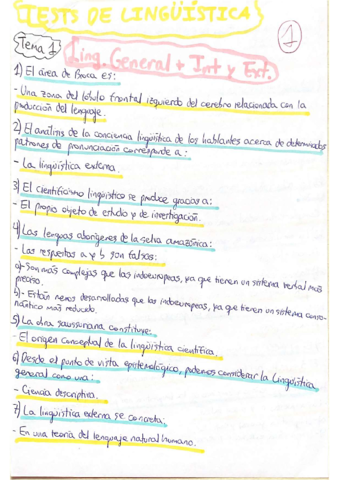 TESTS DE LINGÜÍSTICA
1
Tema 1
Ling. General + Int y Ext.
1) El área de Broca es:
- Una zona del lóbulo frontal izquierdo del cerebro relacionada con la
producción del lenguaje.
2) El análisis de la conciencia lingüística de los hablantes acerca de determinados
patrones de pronunciación corresponde a:
- La lingüística externa.
3) El cientificismo lingüístico se produce gracias a:
- El propio objeto de estudio y de investigación.
4) Las lenguas aborígenes de la selva amazónica:
- Las respuestas a y b son falsas:
a)- Son más complejas que las indoeuropeas, ya que tienen un sistema verbal más
preciso.
b)- Están menos desarrolladas que las indoeuropeas, ya que tienen un sistema conso-
nántico más reducido.
5) La obra saussuriana constituye:
- El origen conceptual de la lingüística científica.
6) Desde el punto de vista epistemológico, podemos considerar la Lingüística
general como una:
- Ciencia descriptiva.
7) La lingüística externa se concreta:
- En una teoría del lenguaje natural humano.